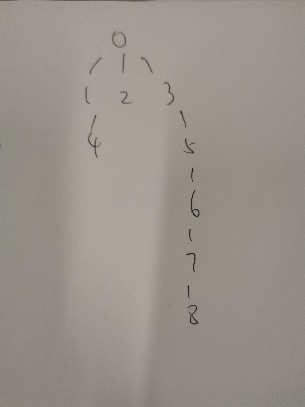 0
1 2 3
4 5
6
7
8